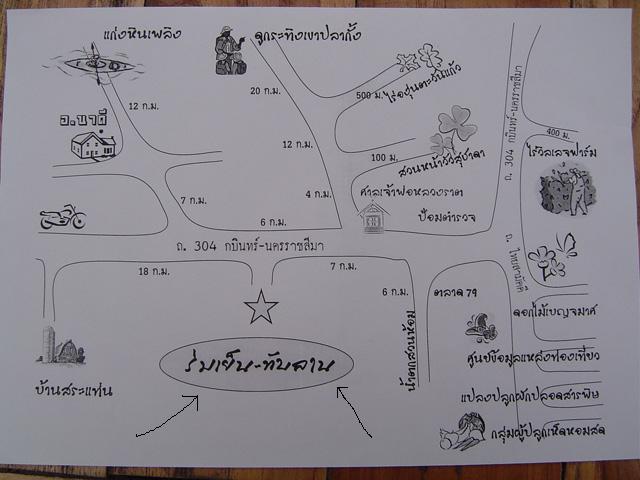 แก่งหินเพิง
ดูกระทิงเขาปลากั้ง
20 ก.ม.
500 ม.
ไร่องุ่นตะวันแก้ว
12 ก.ม.
อ.นาดี
12 ก.ม.
100 ม.
สวนหน้าวัวสุชาดา
ถ. 304 กบินทร์-นครราชสีมา
400 ม.
ไร่วิลเลจฟาร์ม
7 ก.ม.
4 ก.ม.
ศาลเจ้าพ่อหลวงราช
ป้อมตำรวจ
6 ก.ม.
ถ. 304 กบินทร์-นครราชสีมา
ถ. ไทยสามัคคี
18 ก.ม.
7 ก.ม.
6 ก.ม.
ตลาด 79
น้ำตกสวนห้อม
ดอกไม้เบญจมาศ
ร่มเย็น-ทับลาน
ศูนย์ข้อมูลแหล่งท่องเที่ยว
บ้านสระแท่น
แปลงปลูกผักปลอดสารพิษ
กลุ่มผู้ปลูกเห็ดหอมสด